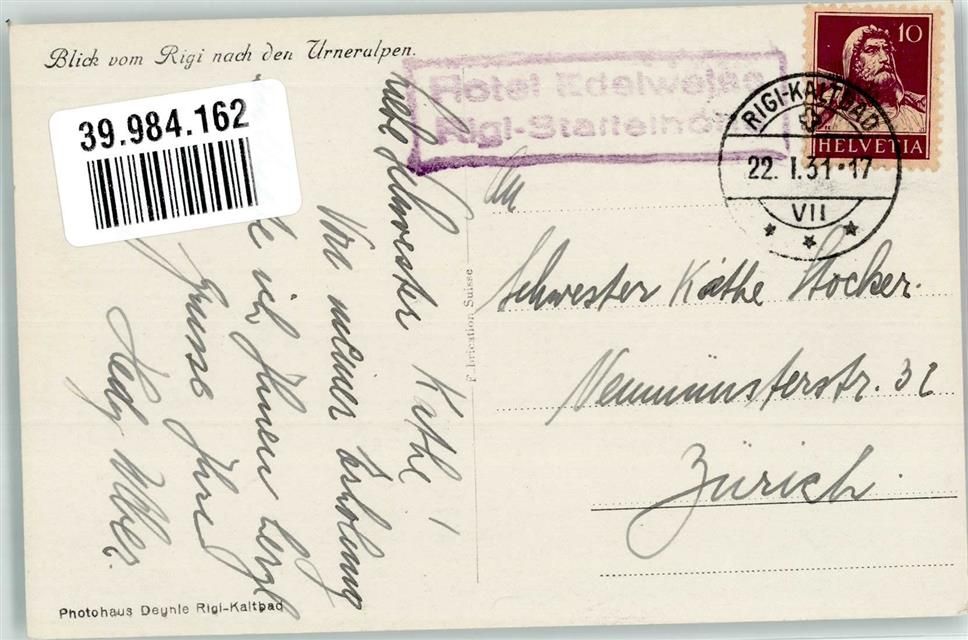 Blick vom Rigi nach den Urneralpen.
39.984.162
Hotel Edelweiss
Rigi-Staffelhöhe
10
HELVETIA
RIGI-KALTBAD
22. I. 31·17
VII
Liebe Schwester Käthe!
Von meiner Erholung
ich Ihnen herzl
Grüsse Ihre
Hedy
An
Schwester Käthe Stocker.
Neumünsterstr. 32
Zürich.
Fabrication Suisse
Photohaus Deynle Rigi-Kaltbad